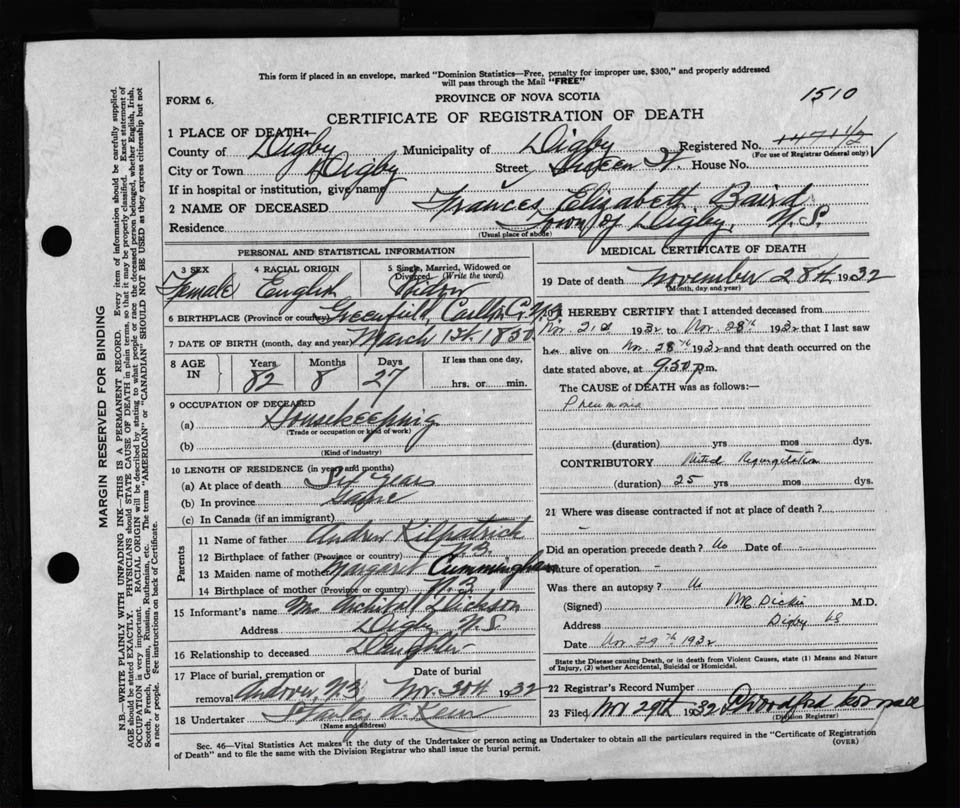 This form if placed in an envelope, marked "Dominion Statistics—Free, penalty for improper use, $300," and properly addressed
will pass through the Mail "FREE"
FORM 6.
PROVINCE OF NOVA SCOTIA
1510
CERTIFICATE OF REGISTRATION OF DEATH
1 PLACE OF DEATH—
Registered No. 1471 1/2
County of Digby Municipality of Digby (For use of Registrar General only)
City or Town Digby Street Queen St. House No.
If in hospital or institution, give name
2 NAME OF DECEASED Frances Elizabeth Baird
Residence Town of Digby, N.S.
(Usual place of abode)
PERSONAL AND STATISTICAL INFORMATION
3 SEX 4 RACIAL ORIGIN 5 Single, Married, Widowed or
Divorced (Write the word)
Female English Widow
6 BIRTHPLACE (Province or country) Greenfield Co. N.B.
7 DATE OF BIRTH (month, day and year) March 1st. 1850
8 AGE IN Years Months Days If less than one day,
82 8 27 hrs. or min.
9 OCCUPATION OF DECEASED
(a) Housekeeping
(Trade or occupation or kind of work)
(b)
(Kind of industry)
10 LENGTH OF RESIDENCE (in years and months)
(a) At place of death Six years
(b) In province Same
(c) In Canada (if an immigrant)
Parents
11 Name of father Andrew Kilpatrick
12 Birthplace of father (Province or country) N.B.
13 Maiden name of mother Margaret Cummingham
14 Birthplace of mother (Province or country) N.B.
15 Informant's name Mrs Dickson
Address Digby N.S.
16 Relationship to deceased Daughter
17 Place of burial, cremation or Date of burial
removal Andover N.B. Nov. 30th 1932
18 Undertaker
(Name and address)
MEDICAL CERTIFICATE OF DEATH
19 Date of death November 28th 1932
(Month, day and year)
I HEREBY CERTIFY that I attended deceased from
Nov. 21st 1932 to Nov 28th 1932 that I last saw
her alive on Nov 28th 1932 and that death occurred on the
date stated above, at 9.30 p.m.
The CAUSE of DEATH was as follows:—
Pneumonia
(duration) yrs mos dys.
CONTRIBUTORY Mitral Regurgitation
(duration) 25 yrs mos dys.
21 Where was disease contracted if not at place of death?
-
Did an operation precede death? No Date of -
Nature of operation -
Was there an autopsy? No
(Signed) Dickie M.D.
Address Digby NS
Date Nov 29th 1932
State the Disease causing Death, or in death from Violent Causes, state (1) Means and Nature
of Injury, (2) whether Accidental, Suicidal or Homicidal.
22 Registrar's Record Number
23 Filed Nov 29th 1932
(Division Registrar)
Sec. 46—Vital Statistics Act makes it the duty of the Undertaker or person acting as Undertaker to obtain all the particulars required in the "Certificate of Registration
of Death" and to file the same with the Division Registrar who shall issue the burial permit.
(OVER)
MARGIN RESERVED FOR BINDING
N.B.—WRITE PLAINLY WITH UNFADING INK—THIS IS A PERMANENT RECORD. Every item of information should be carefully supplied.
AGE should be stated EXACTLY. PHYSICIANS should STATE CAUSE OF DEATH in plain terms, so that it may be properly classified. Exact statement of
OCCUPATION is very important. RACIAL ORIGIN will be described by stating to what people or race the deceased person belonged, whether English, Irish,
Scotch, French, German, Russian, Ruthenian, etc. The terms "AMERICAN" or "CANADIAN" SHOULD NOT BE USED as they express citizenship but not
a race or people. See instructions on back of Certificate.